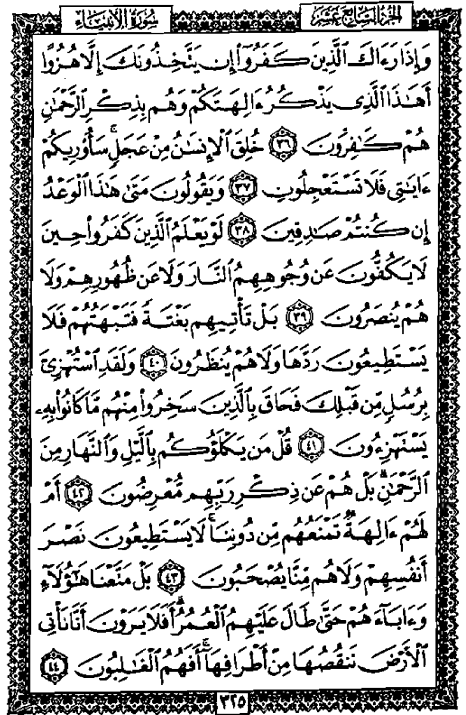 الجزء السابع عشر
سورة الأنبياء
وَإِذَا رَءَاكَ الَّذِينَ كَفَرُوٓا۟ إِن يَتَّخِذُونَكَ إِلَّا هُزُوًا
أَهَٰذَا الَّذِى يَذْكُرُ ءَالِهَتَكُمْ وَهُم بِذِكْرِ الرَّحْمَٰنِ
هُمْ كَٰفِرُونَ ٣٦ خُلِقَ الْإِنسَٰنُ مِنْ عَجَلٍ ۚ سَأُو۟رِيكُمْ
ءَايَٰتِى فَلَا تَسْتَعْجِلُونِ ٣٧ وَيَقُولُونَ مَتَىٰ هَٰذَا الْوَعْدُ
إِن كُنتُمْ صَٰدِقِينَ ٣٨ لَوْ يَعْلَمُ الَّذِينَ كَفَرُوا۟ حِينَ
لَا يَكُفُّونَ عَن وُجُوهِهِمُ النَّارَ وَلَا عَن ظُهُورِهِمْ وَلَا
هُمْ يُنصَرُونَ ٣٩ بَلْ تَأْتِيهِم بَغْتَةً فَتَبْهَتُهُمْ فَلَا
يَسْتَطِيعُونَ رَدَّهَا وَلَا هُمْ يُنظَرُونَ ٤٠ وَلَقَدِ اسْتُهْزِئَ
بِرُسُلٍ مِّن قَبْلِكَ فَحَاقَ بِالَّذِينَ سَخِرُوا۟ مِنْهُم مَّا كَانُوا۟ بِهِۦ
يَسْتَهْزِءُونَ ٤١ قُلْ مَن يَكْلَؤُكُم بِالَّيْلِ وَالنَّهَارِ مِنَ
الرَّحْمَٰنِ ۗ بَلْ هُمْ عَن ذِكْرِ رَبِّهِم مُّعْرِضُونَ ٤٢ أَمْ
لَهُمْ ءَالِهَةٌ تَمْنَعُهُم مِّن دُونِنَا ۚ لَا يَسْتَطِيعُونَ نَصْرَ
أَنفُسِهِمْ وَلَا هُم مِّنَّا يُصْحَبُونَ ٤٣ بَلْ مَتَّعْنَا هَٰٓؤُلَآءِ
وَءَابَآءَهُمْ حَتَّىٰ طَالَ عَلَيْهِمُ الْعُمُرُ ۗ أَفَلَا يَرَوْنَ أَنَّا نَأْتِى
الْأَرْضَ نَنقُصُهَا مِنْ أَطْرَافِهَآ ۚ أَفَهُمُ الْغَٰلِبُونَ ٤٤
٣٢٥